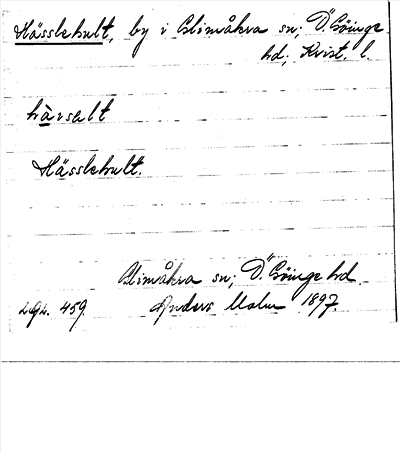 Hässlehult, by i Glimåkra sn; Ö. Göinge
hd; Krist. l.
Hässlehult.
Glimåkra sn; Ö. Göinge hd.
459 Anders Malm 1897.